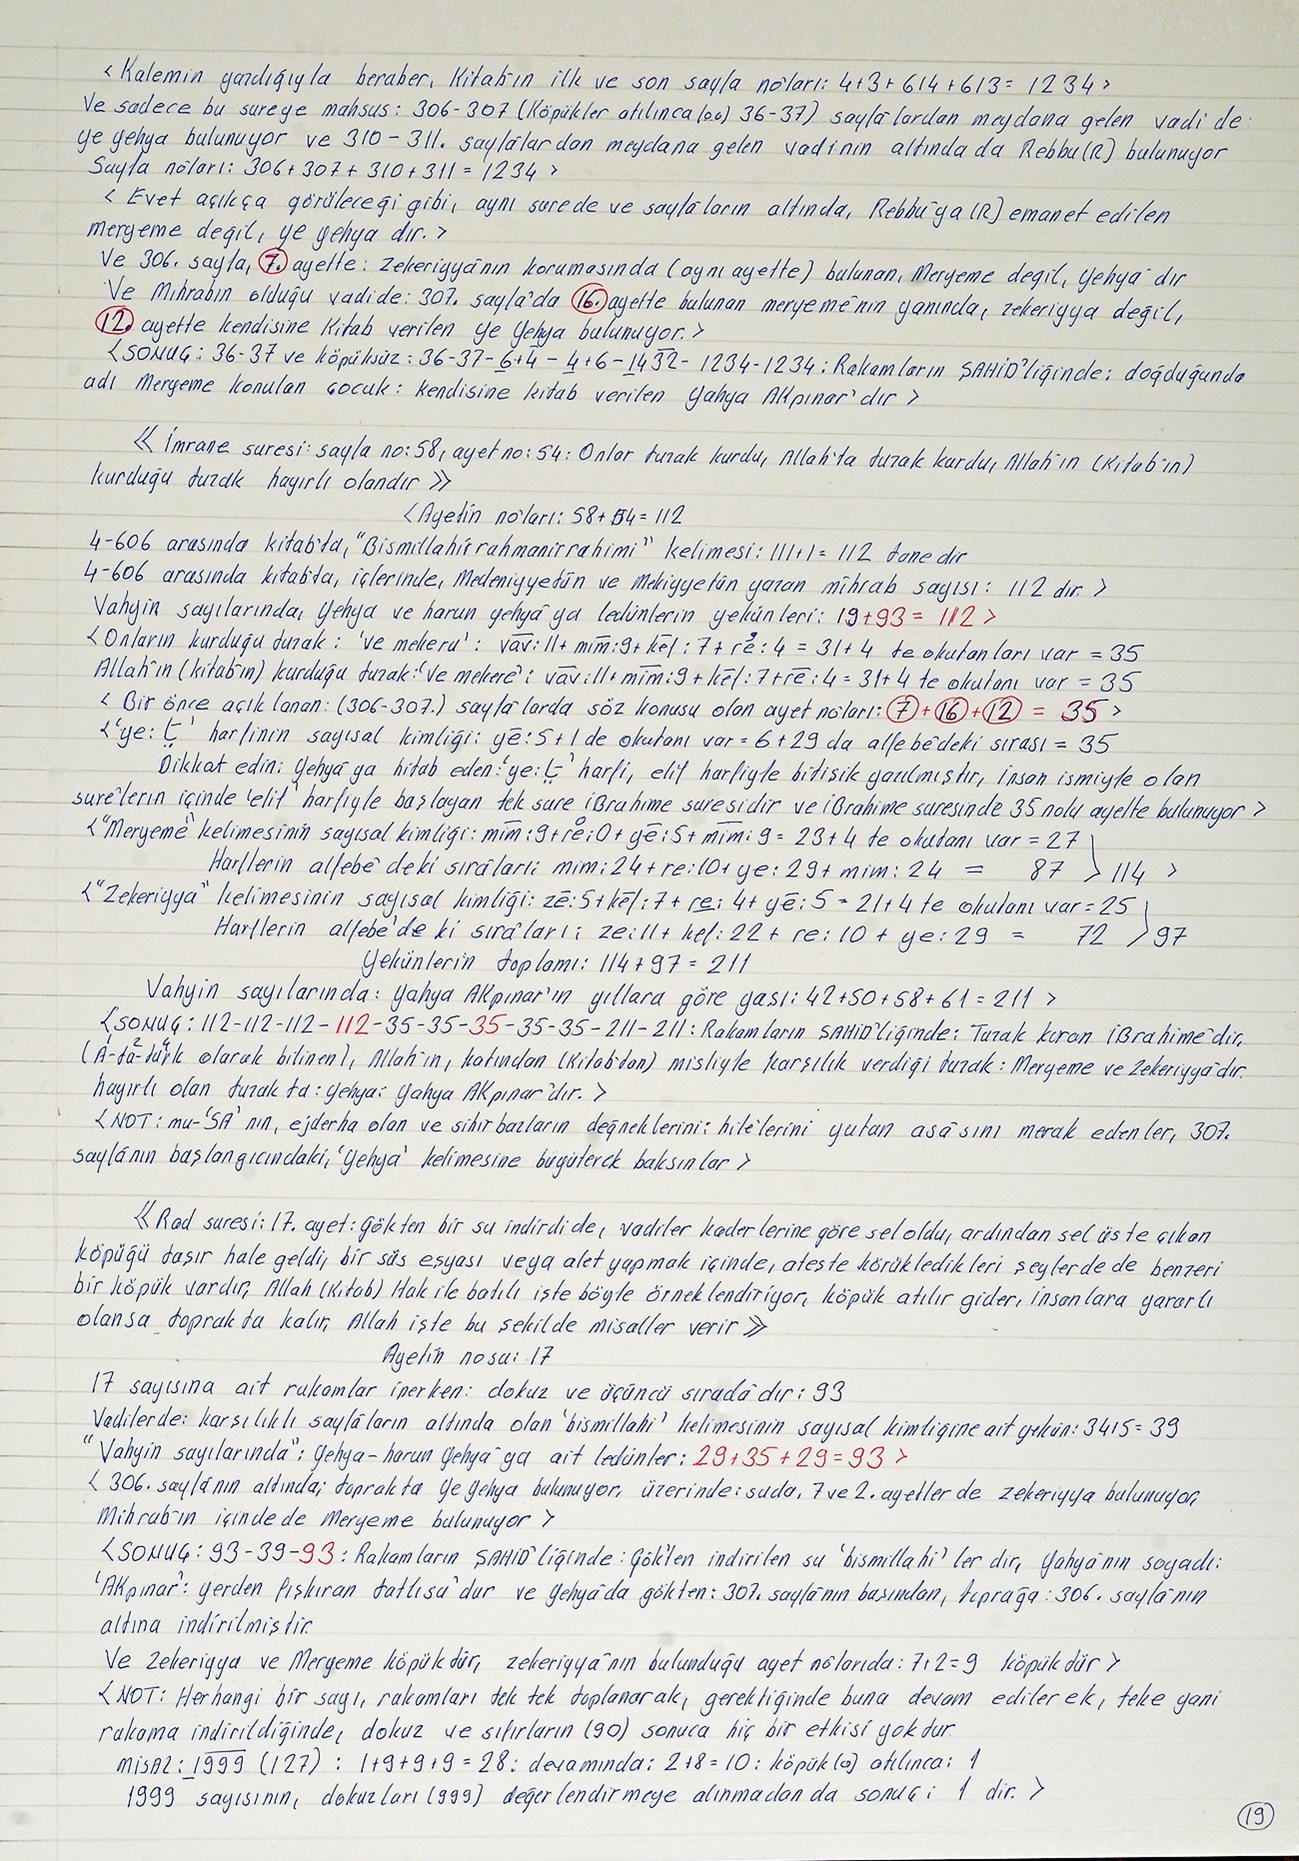 < Kalemin yazdığıyla beraber, Kitab'ın ilk ve son sayfa noları: 4+3+614+613= 1234 >
Ve sadece bu sureye mahsus: 306-307 (Köpükler atılınca (0.0) 36-37) sayfalardan meydana gelen vadi de:
ye yehya bulunuyor ve 310-311. sayfalardan meydana gelen vadinin altında da Rebbu(R) bulunuyor
Sayfa noları: 306+307+310+311=1234 >
< Evet açıkça görüleceği gibi, aynı surede ve sayfaların altında, Rebbu'ya (R) emanet edilen
meryeme değil, ye yehya dır. >
Ve 306. sayfa, 7. ayette: zekeriyyanın korumasında (aynı ayette) bulunan, Meryeme değil, yehya dır
Ve Mihrabın olduğu vadide: 307. sayfa'da 16. ayette bulunan meryeme'nin yanında, zekeriyya değil,
12. ayette kendisine Kitab verilen ye yehya bulunuyor. >
< SONUÇ: 36-37 ve köpüksüz: 36-37-6+4-4+6-1432-1234-1234: Rakamların ŞAHİD'liğinde: doğduğunda
adı Meryeme konulan çocuk: kendisine kitab verilen Yahya AKpınar'dır >
≪ İmrane suresi: sayfa no: 58, ayet no: 54: Onlar tuzak kurdu, Allah'ta tuzak kurdu, Allah'ın (Kitab'ın)
kurduğu tuzak hayırlı olandır ≫
< Ayetin noları: 58+54=112
4-606 arasında kitab'ta, "Bismillahirrahmanirrahimi" kelimesi: 111+1= 112 tane dir
4-606 arasında kitabta, içlerinde, Medeniyyetün ve Mekiyyetün yazan mihrab sayısı: 112 dir. >
Vahyin sayılarında, yehya ve harun yehya'ya ledünlerin yekünleri: 19+93= 112 >
< Onların kurduğu tuzak: 've mekeru': vāv: 11+ mīm: 9+ kēf: 7+ rē: 4 = 31+4 te okutanları var = 35
Allah'ın (kitab'ın) kurduğu tuzak: 've mekere': vāv: 11+ mīm: 9+ kēf: 7+ rē: 4= 31+4 te okutanı var = 35
< Bir önce açıklanan: (306-307.) sayfalarda söz konusu olan ayet noları: 7+16+12 = 35 >
< 'ye: يَ' harfinin sayısal kimliği: yē: 5+1 de okutanı var= 6+29 da alfebedeki sırası = 35
Dikkat edin: yehya'ya hitab eden: 'ye: يَ' harfi, elif harfiyle bitişik yazılmıştır, insan ismiyle olan
surelerin içinde 'elif' harfiyle başlayan tek sure İBrahime suresidir ve İBrahime suresinde 35 nolu ayette bulunuyor >
< "Meryeme" kelimesinin sayısal kimliği: mīm: 9+ re: 0+ yē: 5+ mīm: 9= 23+4 te okutanı var = 27
Harflerin alfebe'deki sıraları: mim: 24+ re: 10+ ye: 29+ mim: 24 = 87 > 114 >
< "Zekeriyya" kelimesinin sayısal kimliği: zē: 5+ kēf: 7+ re: 4+ yē: 5 = 21+4 te okutanı var= 25
Harflerin alfebe'de ki sıraları: ze: 11+ kef: 22+ re: 10+ ye: 29 = 72 > 97
Yekünlerin toplamı: 114+97= 211
Vahyin sayılarında: yahya AKpınar'ın yıllara göre yaşı: 42+50+58+61= 211 >
< SONUÇ: 112-112-112-112-35-35-35-35-35-211-211: Rakamların ŞAHİD'liğinde: Tuzak kuran İBrahime'dir,
(A-ta-türk olarak bilinen), Allah'ın, katından (Kitab'tan) misliyle karşılık verdiği tuzak: Meryeme ve Zekeriyya'dır.
hayırlı olan tuzak ta: yehya: yahya AKpınar'dır. >
< NOT: mu-'SA' nın, ejderha olan ve sihirbazların değneklerini: hilelerini yutan asasını merak edenler, 307.
sayfanın başlangıcındaki, 'yehya' kelimesine büyüterek baksınlar >
≪ Rad suresi: 17. ayet: Gökten bir su indirdi de, vadiler kaderlerine göre sel oldu, ardından sel üste çıkan
köpüğü taşır hale geldi, bir süs eşyası veya alet yapmak içinde, ateşte körükledikleri şeylerde de benzeri
bir köpük vardır, Allah (Kitab) Hak ile batılı işte böyle örneklendiriyor, köpük atılır gider, insanlara yararlı
olansa toprakta kalır, Allah işte bu şekilde misaller verir ≫
Ayetin nosu: 17
17 sayısına ait rakamlar inerken: dokuz ve üçüncü sırada'dır: 93
Vadilerde: karşılıklı sayfaların altında olan 'bismillahi' kelimesinin sayısal kimliğine ait yekün: 34+5= 39
"Vahyin sayılarında": yehya-harun yehya'ya ait ledünler: 29+35+29=93 >
< 306. sayfanın altında; toprakta ye yehya bulunuyor, üzerinde: suda, 7 ve 2. ayetlerde zekeriyya bulunuyor,
Mihrab'ın içinde de Meryeme bulunuyor >
< SONUÇ: 93-39-93: Rakamların ŞAHİD'liğinde: Gökten indirilen su 'bismillahi' ler dir, Yahya'nın soyadı:
'AKpınar': yerden fışkıran tatlısu'dur ve yehya'da gökten: 307. sayfanın başından, toprağa: 306. sayfa'nın
altına indirilmiştir.
Ve Zekeriyya ve Meryeme köpüktür, zekeriyya'nın bulunduğu ayet nolarıda: 7+2=9 köpüktür >
< NOT: Herhangi bir sayı, rakamları tek tek toplanarak, gerektiğinde buna devam edilerek, teke yani
rakama indirildiğinde, dokuz ve sıfırların (90) sonuca hiç bir etkisi yoktur.
MİSAL: 1999 (127) : 1+9+9+9= 28: devamında: 2+8= 10: köpük (0) atılınca: 1
1999 sayısının, dokuzları (999) değerlendirmeye alınmadan da sonuç: 1 dir. >
19